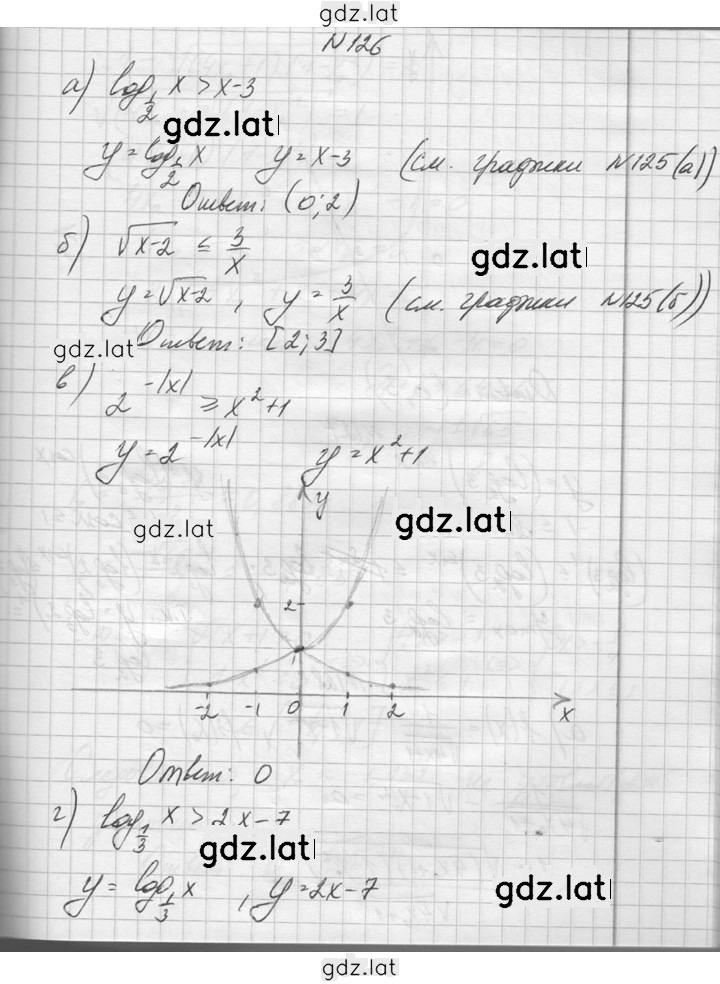 gdz.lat
N126
а) log_{1/2} x > x-3
gdz.lat
y = log_{1/2} x   y = x-3   (см. графики N125(а))
Ответ: (0; 2)
б) √(x-2) ≤ 3/x
gdz.lat
y = √(x-2) , y = 3/x (см. графики N125(б))
gdz.lat
Ответ: [2; 3]
в) 2^{-|x|} ≥ x²+1
y = 2^{-|x|}   y = x²+1
y
gdz.lat
gdz.lat
2
1
-2 -1 0 1 2 x
Ответ: 0
г) log_{1/3} x > 2x-7
gdz.lat
y = log_{1/3} x , y = 2x-7
gdz.lat
gdz.lat